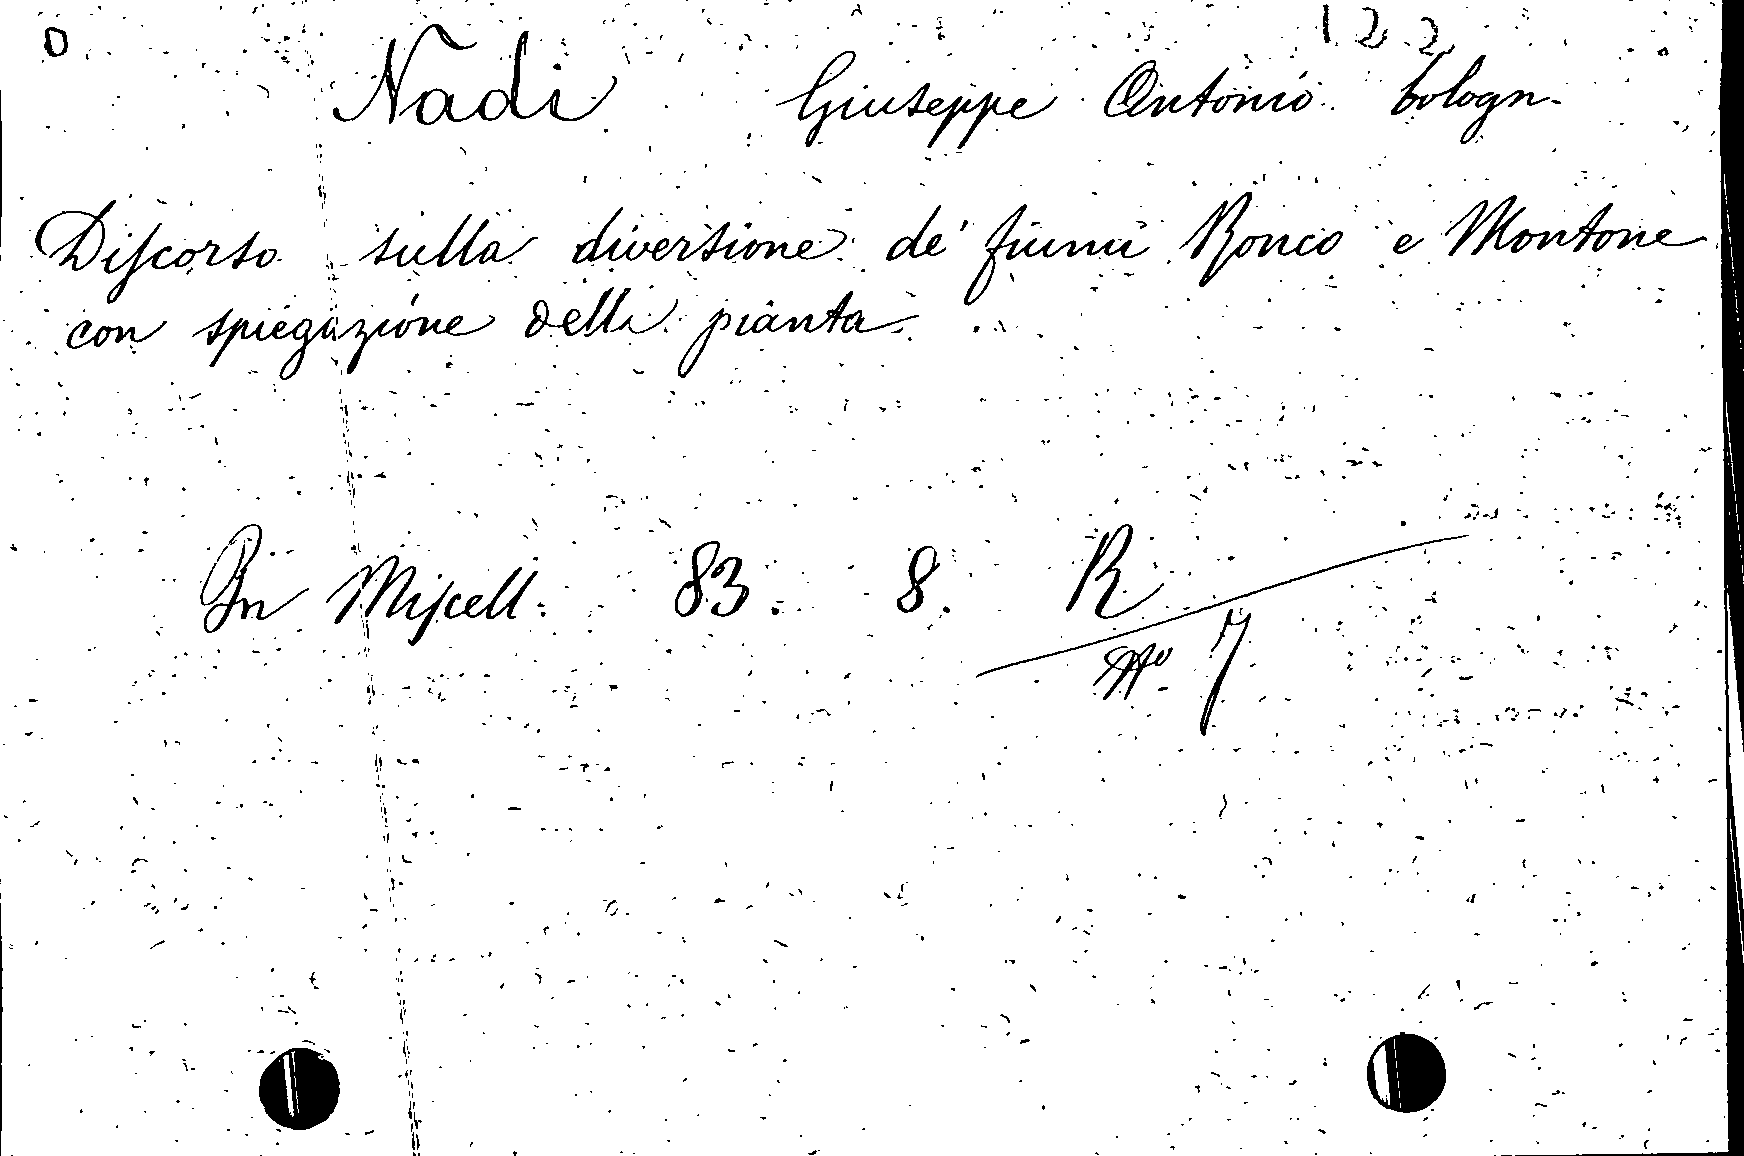 0 122
Nadi Giuseppe Antonio bologn.
Discorso sulla diversione de' fiumi Ronco e Montone
con spiegazione della pianta.
In Miscell. 83. 8. R
No 7